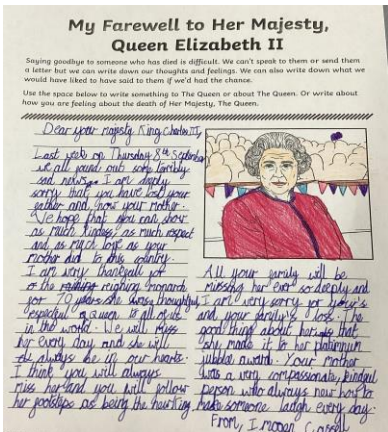 My Farewell to Her Majesty,
Queen Elizabeth II
Saying goodbye to someone who has died is difficult. We can't speak to them or send them
a letter but we can write down our thoughts and feelings. We can also write down what we
would have liked to have said to them if we'd had the chance.
Use the space below to write something to The Queen or about The Queen. Or write about
how you are feeling about the death of Her Majesty, The Queen.
Dear your majesty King Charles III,
Last week on Thursday 8th September
we all found out some terribly
sad news. I am deeply
sorry that you have lost your
father and now your mother.
We hope that you can show
as much kindness, as much respect
and as much love as your
mother did to this country.
I am very thankful for
of the reighing monarch
for 70 years she was thoughtful
espectful a queen to all of it
in the world. We will miss
her every day and she will
always be in our hearts.
I think you will always
miss her and you will follow
her footsteps as being the
All your family will be
missing her ever so deeply and
I am very sorry for your's
and your family's loss. The
good thing about her is that
she made it to her platinum
jubble award. Your mother
was a very compassionate, kindful
person who always now how to
make someone laugh every day.
From, Imogen